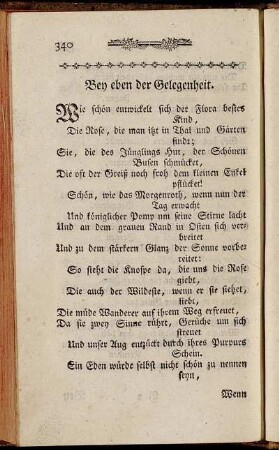 340
Bey eben der Gelegenheit.
Wie schön entwickelt sich der Flora bestes
Kind,
Die Rose, die man itzt in Thal und Gärten
findt;
Sie, die des Jünglings Hut, der Schönen
Busen schmücket,
Die oft der Greiß noch froh dem kleinen Enkel
pflücket!
Schön, wie das Morgenroth, wenn nun der
Tag erwacht
Und königlicher Pomp um seine Stirne lacht
Und an dem grauen Rand in Osten sich ver-
breitet
Und zu dem stärkern Glanz der Sonne vorbe-
reitet:
So steht die Knospe da, die uns die Rose
giebt,
Die auch der Wildeste, wenn er sie siehet,
liebt,
Die müde Wanderer auf ihrem Weg erfreuet,
Da sie zwey Sinne rührt, Gerüche um sich
streuet
Und unser Aug entzückt durch ihres Purpurs
Schein.
Ein Eden würde selbst nicht schön zu nennen
seyn,
Wenn